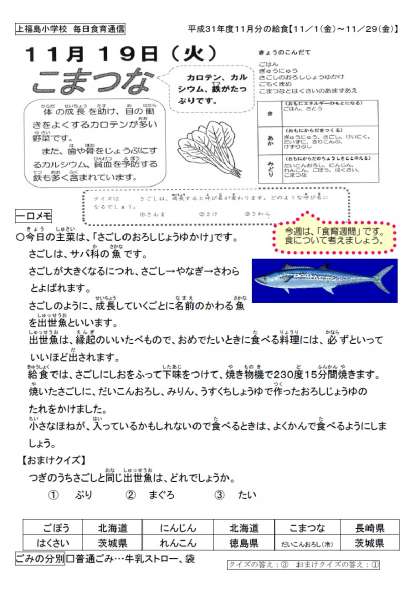 上福島小学校 毎日食育通信
平成31年度11月分の給食【11/1(金)~11/29(金)】
11月19日(火)
こまつな
カロテン、カル
シウム、鉄がたっ
ぷりです。
体の成長を助け、目の働
きをよくするカロテンが多い
野菜です。
また、歯や骨をじょうぶにす
るカルシウム、貧血を予防する
鉄も多く含まれています。
きょうのこんだて
ごはん
ぎゅうにゅう
さごしのおろしじょうゆかけ
ごもくまめ
こまつなとはくさいのあまずあえ
き
ごはん、さとう
あか
みどり
こまつな
クイズは
一口メモ
今週は、「食育週間」です。
食について考えましょう。
○今日の主菜は、「さごしのおろしじょうゆかけ」です。
さごしは、サバ科の魚です。
さごしが大きくなるにつれ、さごし→やなぎ→さわら
とよばれます。
さごしのように、成長していくごとに名前のかわる魚
を出世魚といいます。
出世魚は、縁起のいいたべもので、おめでたいときに食べる料理には、必ずといって
いいほど出されます。
給食では、さごしにしおをふって下味をつけて、焼き物機で230度15分間焼きます。
焼いたさごしに、だいこんおろし、みりん、うすくちしょうゆで作ったおろしじょうゆの
たれをかけました。
小さなほねが、入っているかもしれないので食べるときは、よくかんで食べるようにしま
しょう。
【おまけクイズ】
つぎのうちさごしと同じ出世魚は、どれでしょうか。
① ぶり ② まぐろ ③ たい
ごぼう 北海道 にんじん 北海道 こまつな 長崎県
はくさい 茨城県 れんこん 徳島県 だいこんおろし(冷) 茨城県
ごみの分別 □普通ごみ…牛乳ストロー、袋
クイズの答え：③ おまけクイズの答え：①